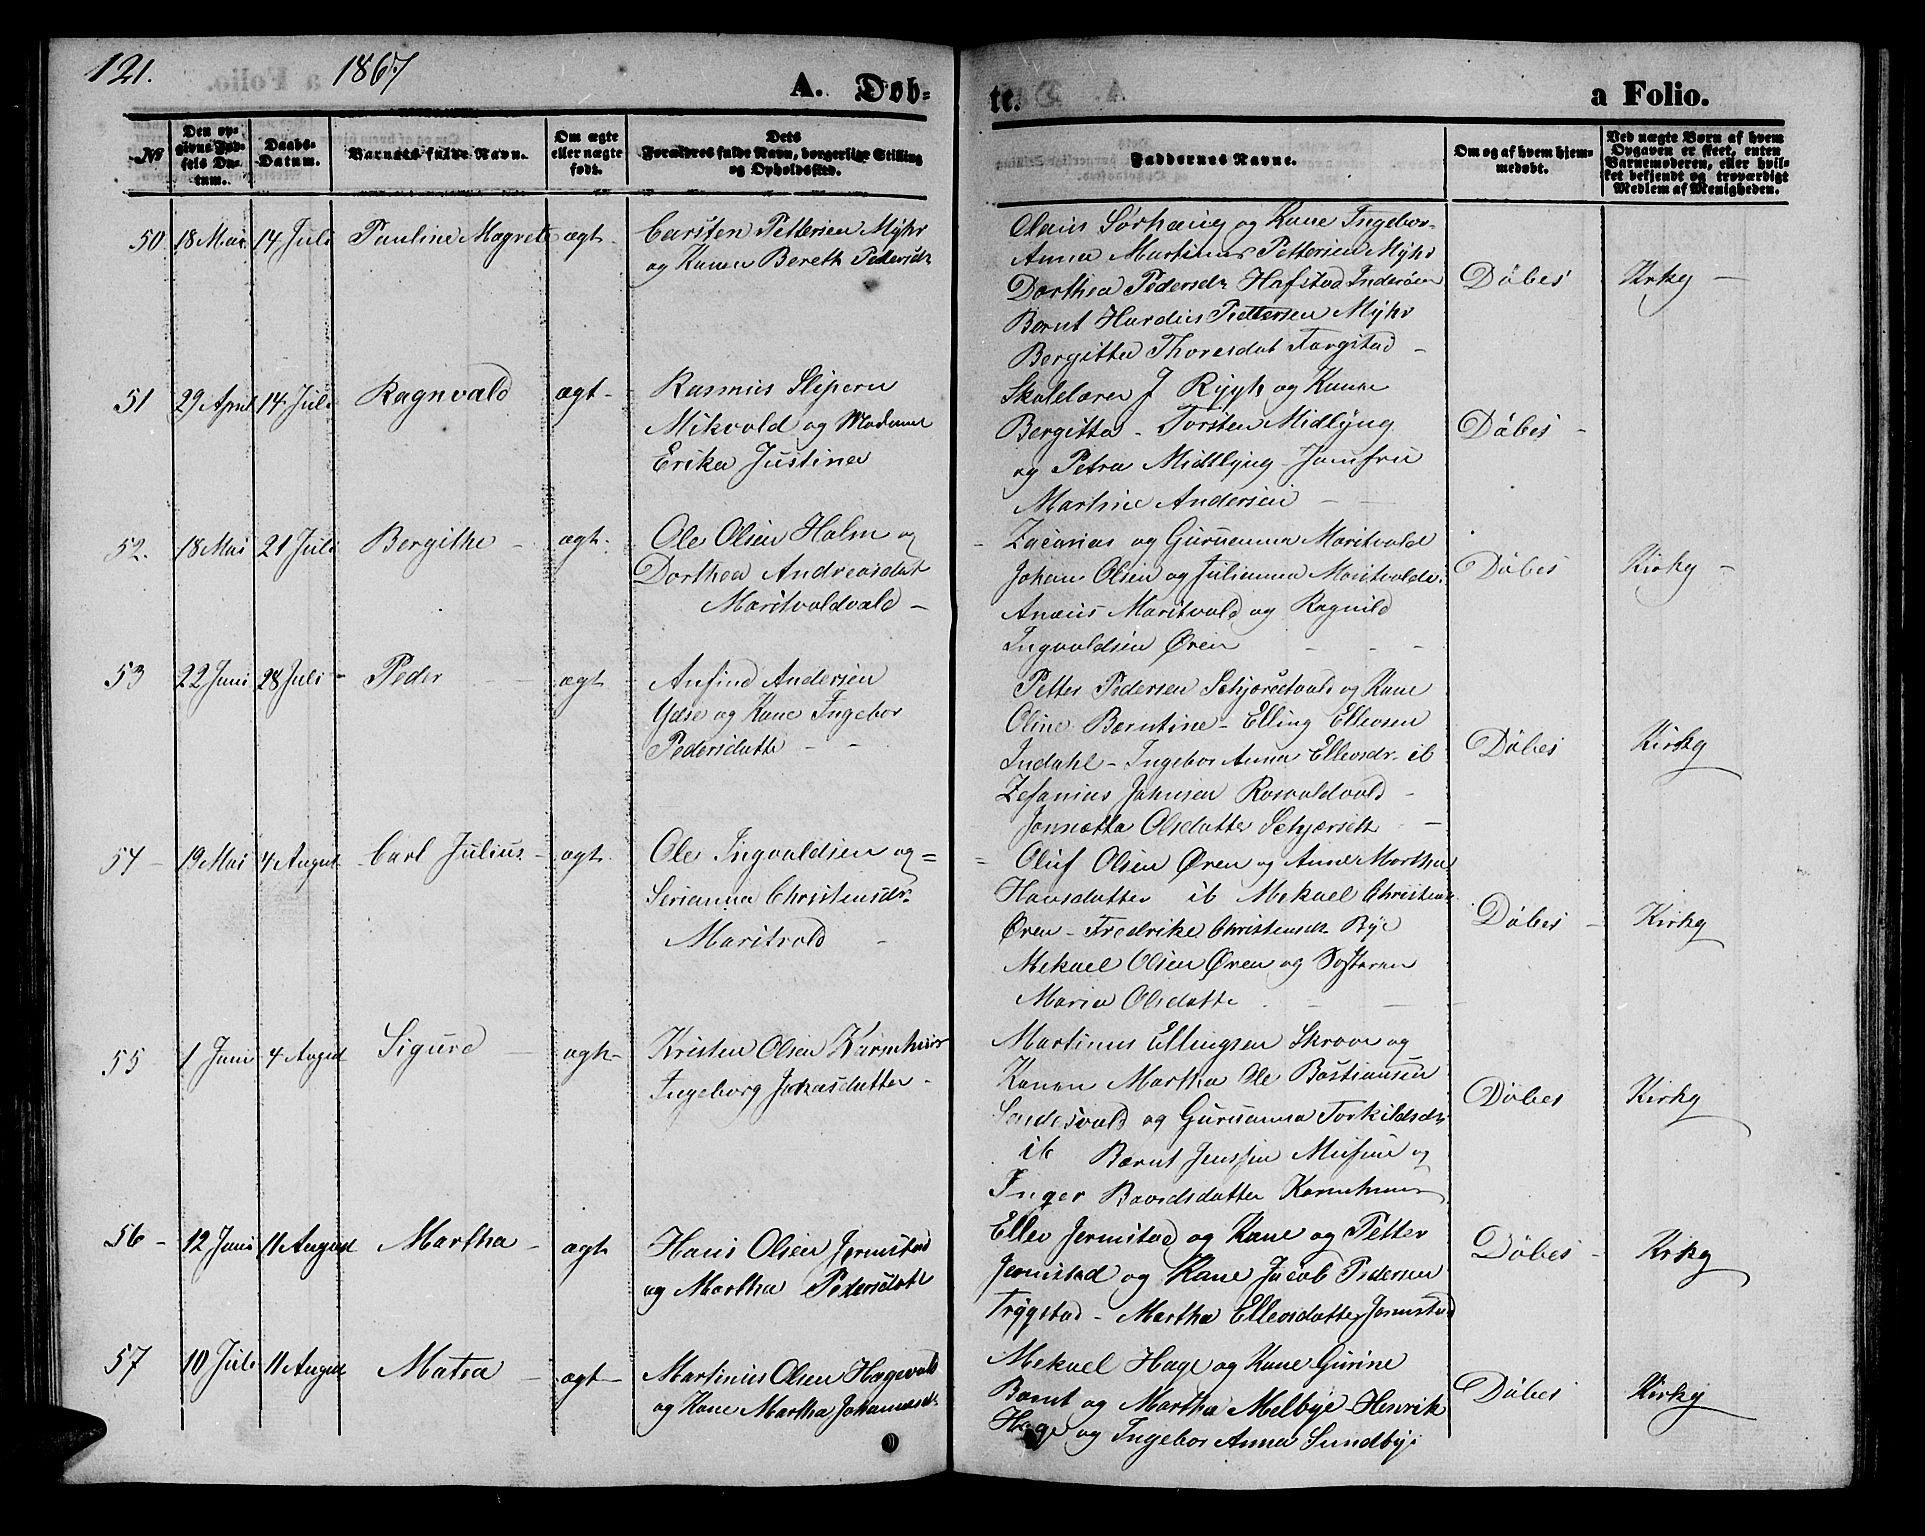 121. 1867
A. Døb-
te.
a Folio.
No
Den op-
givne Fød-
sels Da-
tum.
Daabs-
Datum.
Barnets fulde Navn.
Om ægte
eller uægte
født.
Dets
Forældres fulde Navn, borgerlige Stilling
og Opholdssted.
Faddernes Navne.
Om og af hvem hjem-
medøbt.
Ved uægte Børn af hvem
Opgaven er skeet, enten
Barnemoderen, eller hvil-
ket bekjendt og troværdigt
Medlem af Menigheden.
50 18 Mai 14 Juli Pauline Magrete ægt-
Carsten Pettersen Myhr
og Konen Bereth Pedersdr
Olaus Sørhaug og Kone Ingebor-
Anna Martinus Pettersen Myhr
Dorthea Pedersdr Hafstad Inderøen
Bernt Hardus Pettersen Myhr
Bergitta Thoresdat Fargstad -
Døbes Kirky -
51 29 April 14 Juli Ragnvald ægt-
Rasmus Slipern
Mikvold og Madame
Erika Justina
Skolelærer J Rygh og Kone
Bergitta - Torsten Midlyng
og Petra Midtlyng Jomfru
Martine Andersen - -
Døbes -
52. 18 Mai 21 Juli Bergithe - ægt-
Ole Olsen Holm og
Dorthea Andreasdat
Maritvoldvald -
- Zacarias og Guruanna Maritvold
Johan Olsen og Julianna Maritvolds
Anæus Maritvold og Ragnild
Ingvaldsen Øren - - -
Døbes Kirky -
53 22 Juni 28 Juli - Peder ægt
Anfind Andersen
Ydse og Kone Ingebor
Pedersdatte - -
Petter Pedersen Schjørdtvald og Kone
Oline Berntine - Elling Ellevsen
Indahl - Ingebor Anna Ellevsdr ib
Zefanius Johnsen Rosvoldvald -
Jonnetta Olsdatter Schjærseth -
Døbes Kirky
54 - 19 Mai 4 August Carl Julius - ægt.
Ole Ingvaldsen og =
Serianna Christensdr
Maritvold -
= Oluf Olsen Øren og Anne Martha
Hansdatter ib Mekael Christens
Øren - Fredrike Christensdr Bye
Mekael Olsen Øren og Søsteren
Maria Olsdatte - - -
Døbes - Kirky
55 1 Juni 4 August Sigurd - ægt-
Kristen Olsen Karmhus
Ingeborg Johasdatter -
Martinus Ellingsen Skrove og
Konen Martha Ole Bastiansen
vald og Guruanna Torkildsdr
ib Bernt Jenssen og
Inger Baardsdatter
Døbes Kirky
56 - 12 Juni 11 August Martha - ægt
Hans Olsen Jermstad
og Martha Pedersdat
Ellev Jermstad og Kone og Petter
Jermstad og Kone Jacob Pedersen
Trygstad - Martha Ellevsdatter Jermstad
Døbes - Kirky
57 10 Juli 11 August Matea - ægt-
Martinus Olsen Hagevald
og Kone Martha Johannesdr
Mekael Hage og Kone Gurine
Bernt og Martha Melbye - Henrik
Hage og Ingebor Anna Sundby
Døbes Kirky